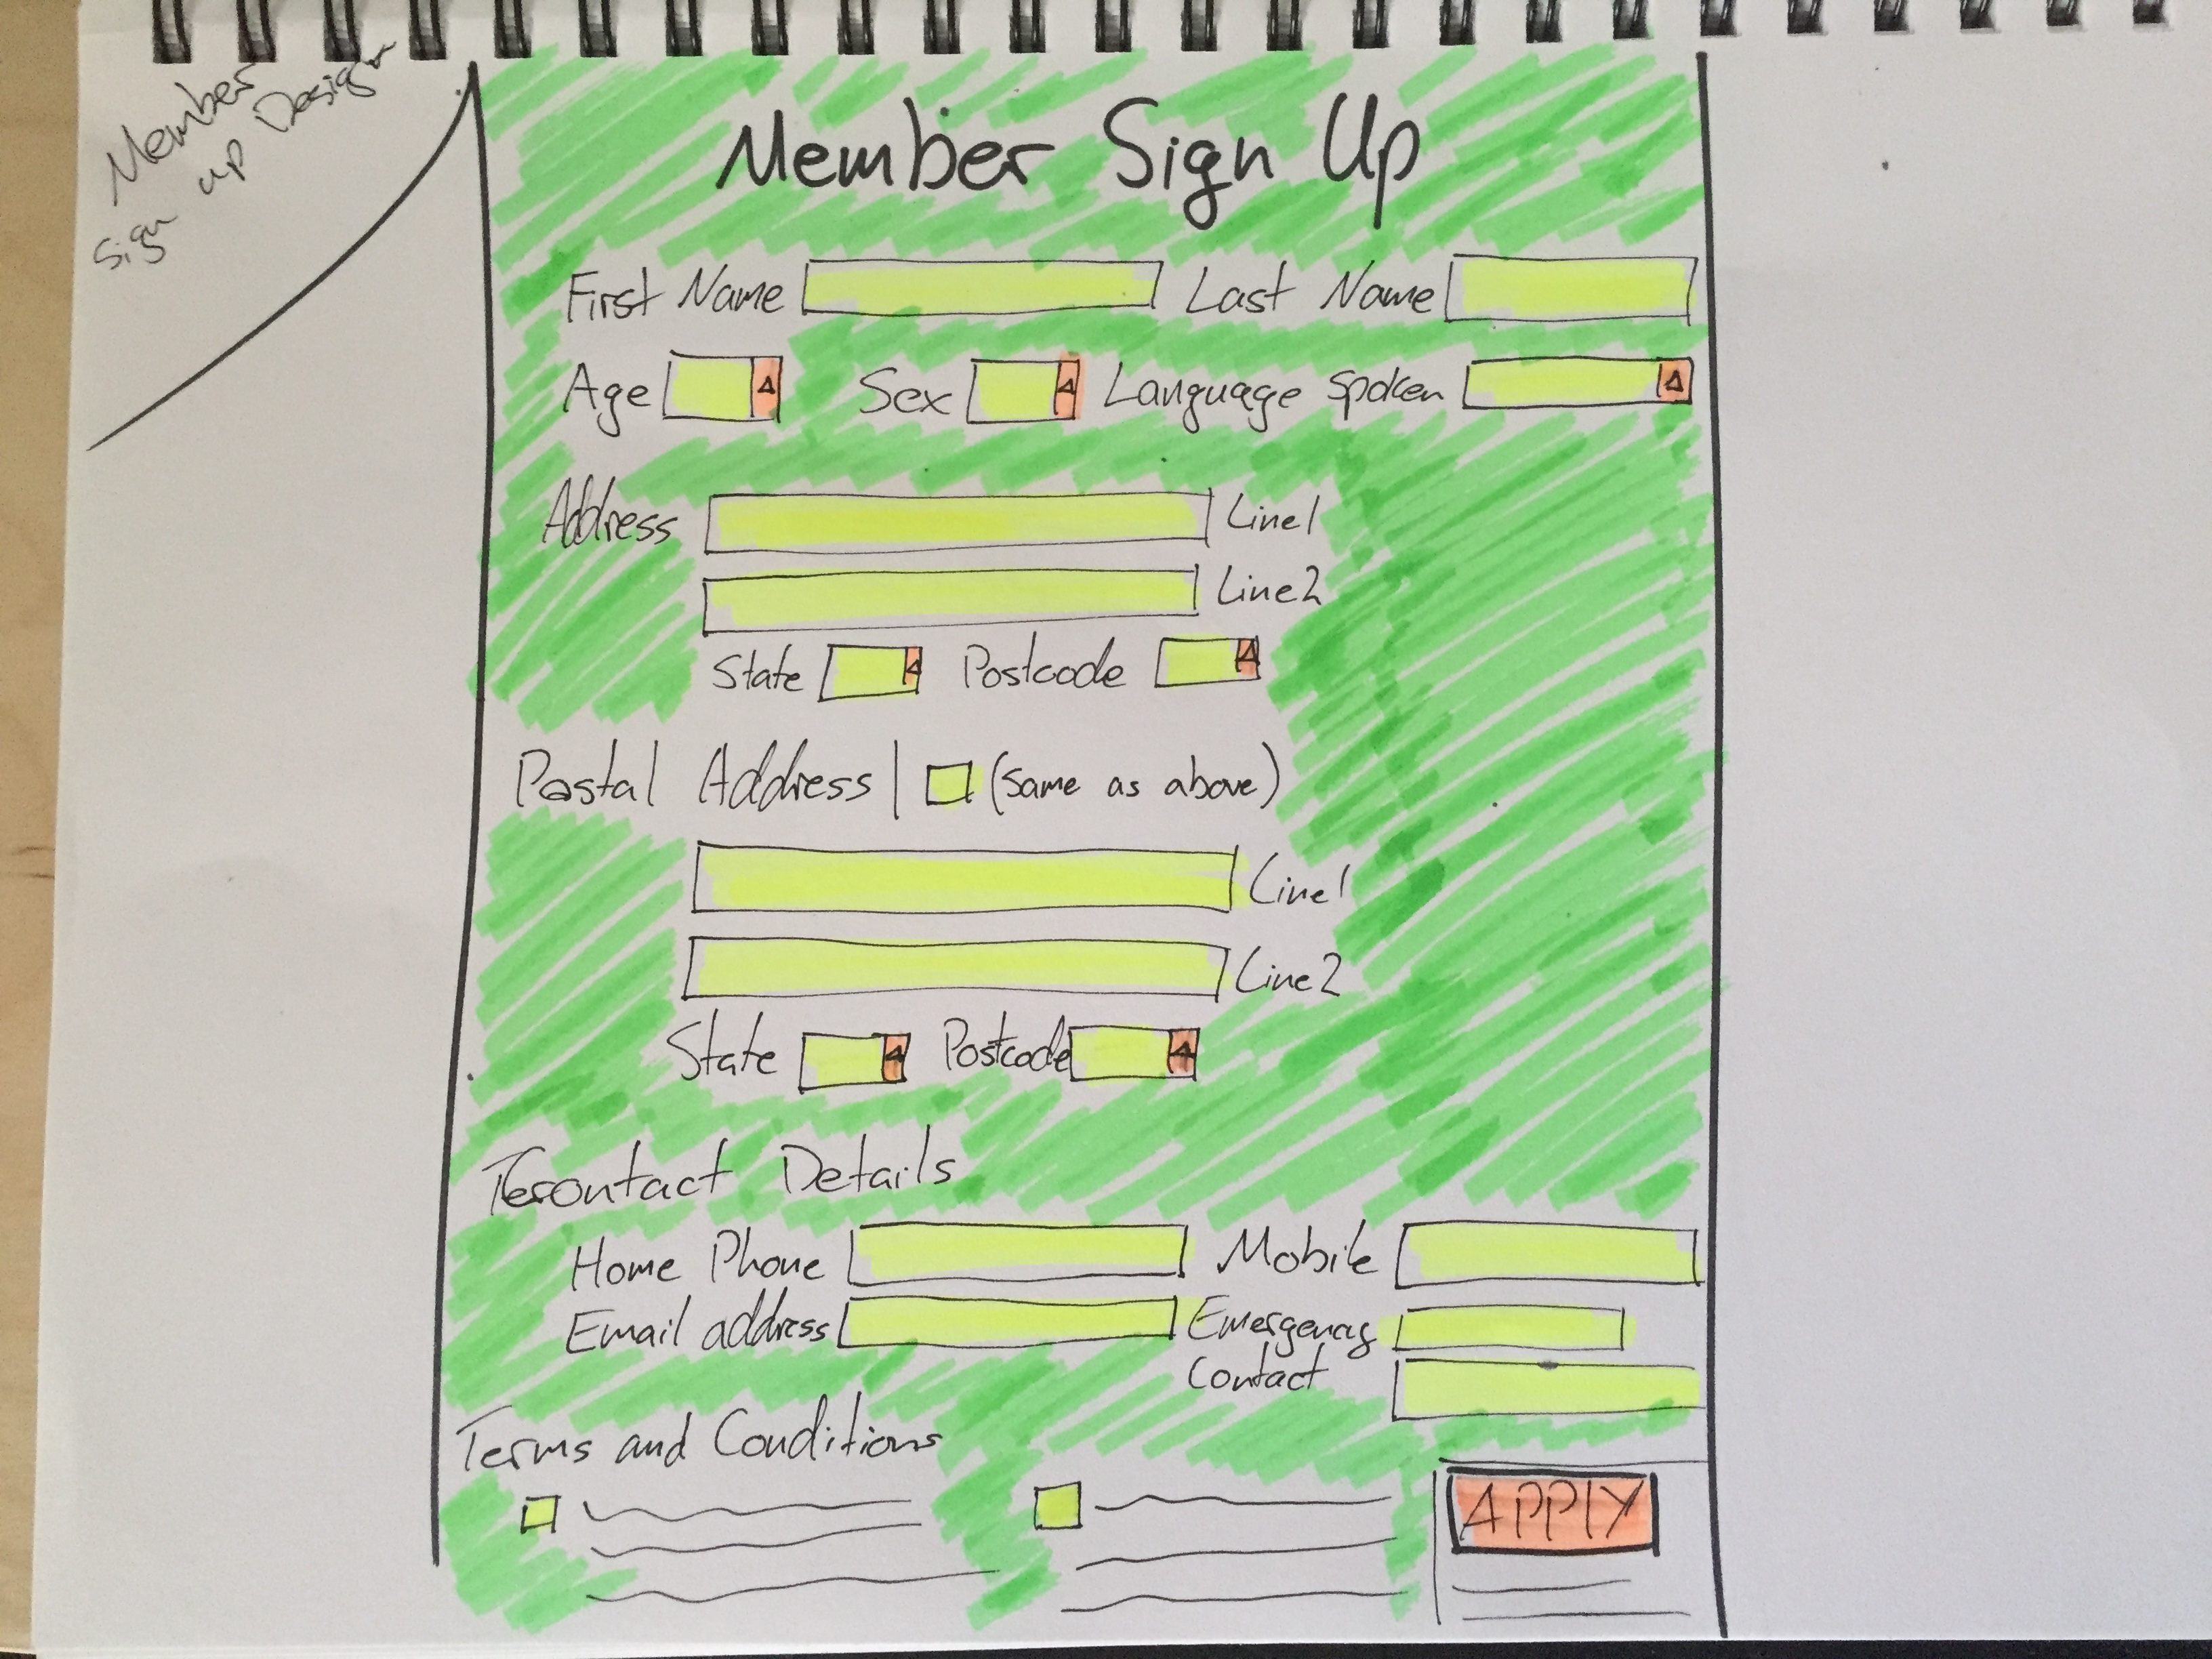 Member
Sign up Design
Member Sign Up
First Name Last Name
Age Sex Language Spoken
Address Line 1
Line 2
State Postcode
Postal Address | (same as above)
Line 1
Line 2
State Postcode
contact Details
Home Phone Mobile
Email address Emergency
Contact
Terms and Conditions
APPLY